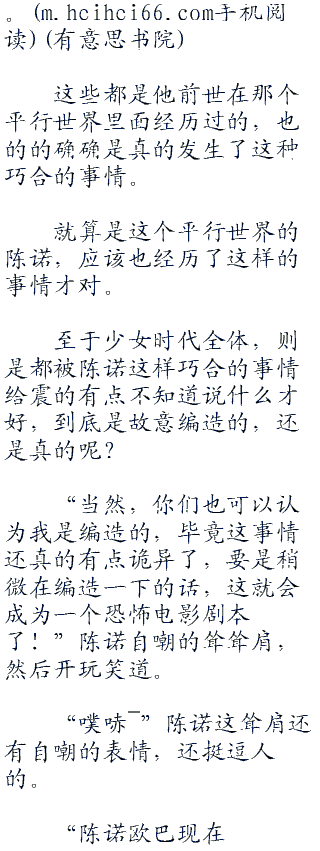 。(m.hcihci66.com手机阅
读)(有意思书院)
这些都是他前世在那个
平行世界里面经历过的，也
的的确确是真的发生了这种
巧合的事情。
就算是这个平行世界的
陈诺，应该也经历了这样的
事情才对。
至于少女时代全体，则
是都被陈诺这样巧合的事情
给震的有点不知道说什么才
好，到底是故意编造的，还
是真的呢？
“当然，你们也可以认
为我是编造的，毕竟这事情
还真的有点诡异了，要是稍
微在编造一下的话，这就会
成为一个恐怖电影剧本
了！”陈诺自嘲的耸耸肩，
然后开玩笑道。
“噗哧¯”陈诺这耸肩还
有自嘲的表情，还挺逗人
的。
“陈诺欧巴现在